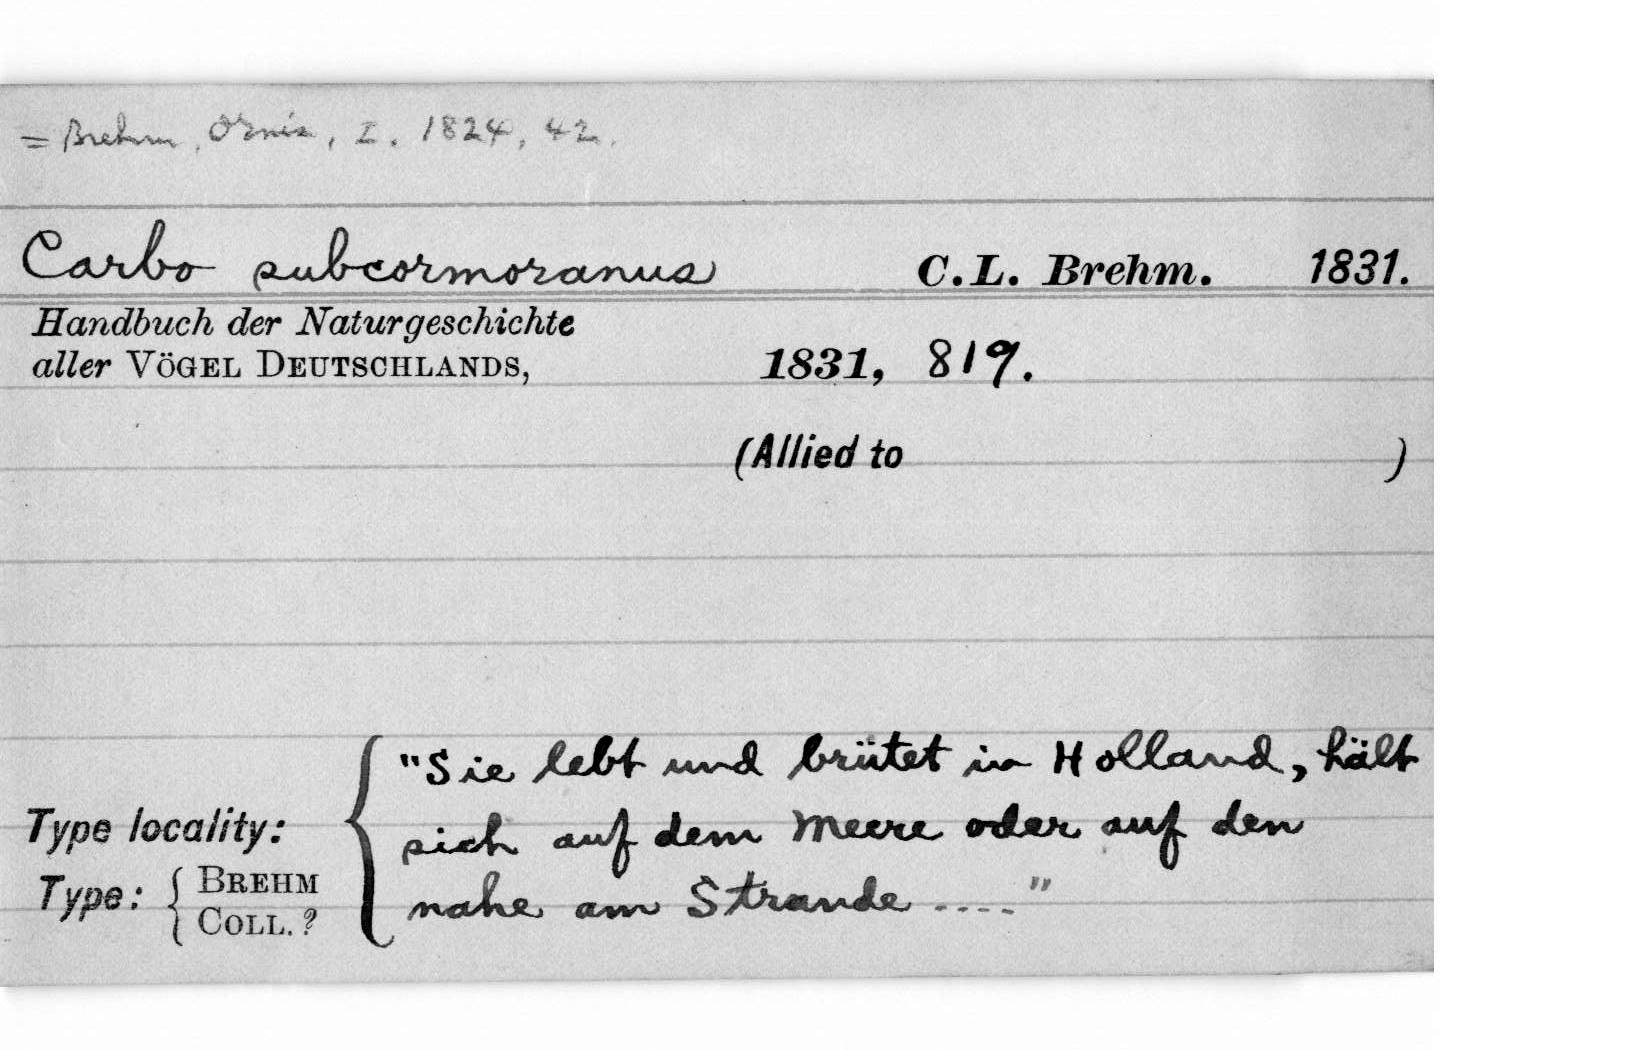 = Brehm, Ornis, I. 1824, 42.
Carbo subcormoranus C.L. Brehm. 1831.
Handbuch der Naturgeschichte
aller VÖGEL DEUTSCHLANDS, 1831, 819.
(Allied to )
"Sie lebt und brütet in Holland, hält
Type locality: sich auf dem Meere oder auf den
Type: BREHM COLL. ? nahe am Strande ...."